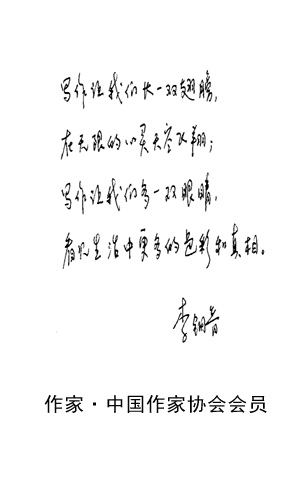 写作让我们长一双翅膀，
在无限的心灵天空飞翔；
写作让我们多一双眼睛，
看见生活中更多的色彩和真相。
李钢音
作家·中国作家协会会员